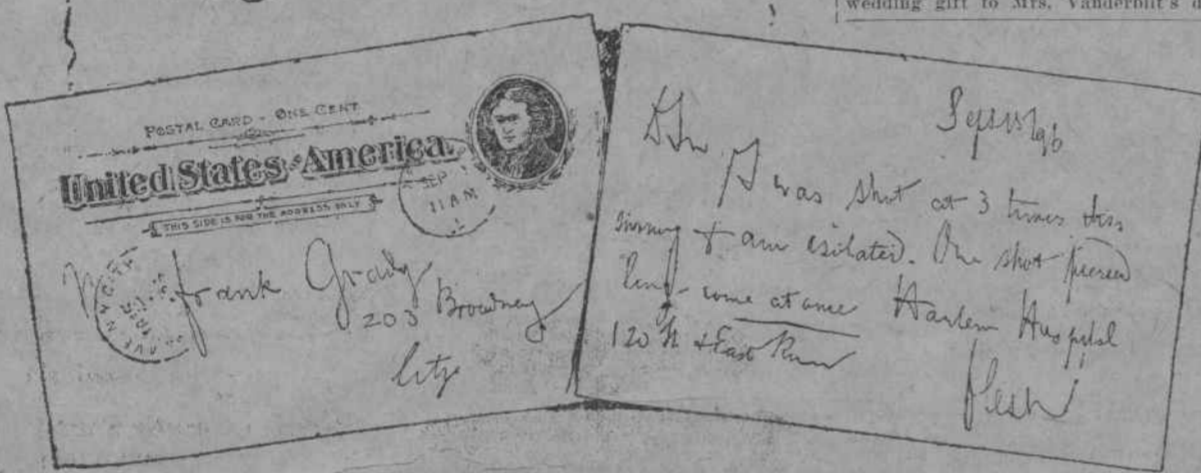 wedding gift to Mrs. Vanderbilt's d
POSTAL CARD - ONE CENT.
United States of America.
THIS SIDE IS FOR THE ADDRESS ONLY
SEP
11 AM
M Frank Grady
203 Broadway
City
Sept 15/96
D Sir
I was shot at 3 times this
morning & am isolated. One shot pierced
lung - come at once Harlem Hospital
120 St & East River